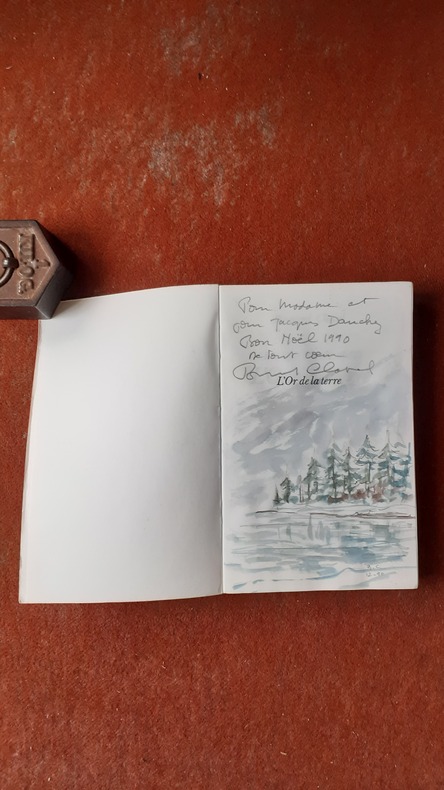 Pour Madame et
pour Jacques Dauchez
Bon Noël 1990
de tout cœur
Bernard Clavel
L'Or de la terre